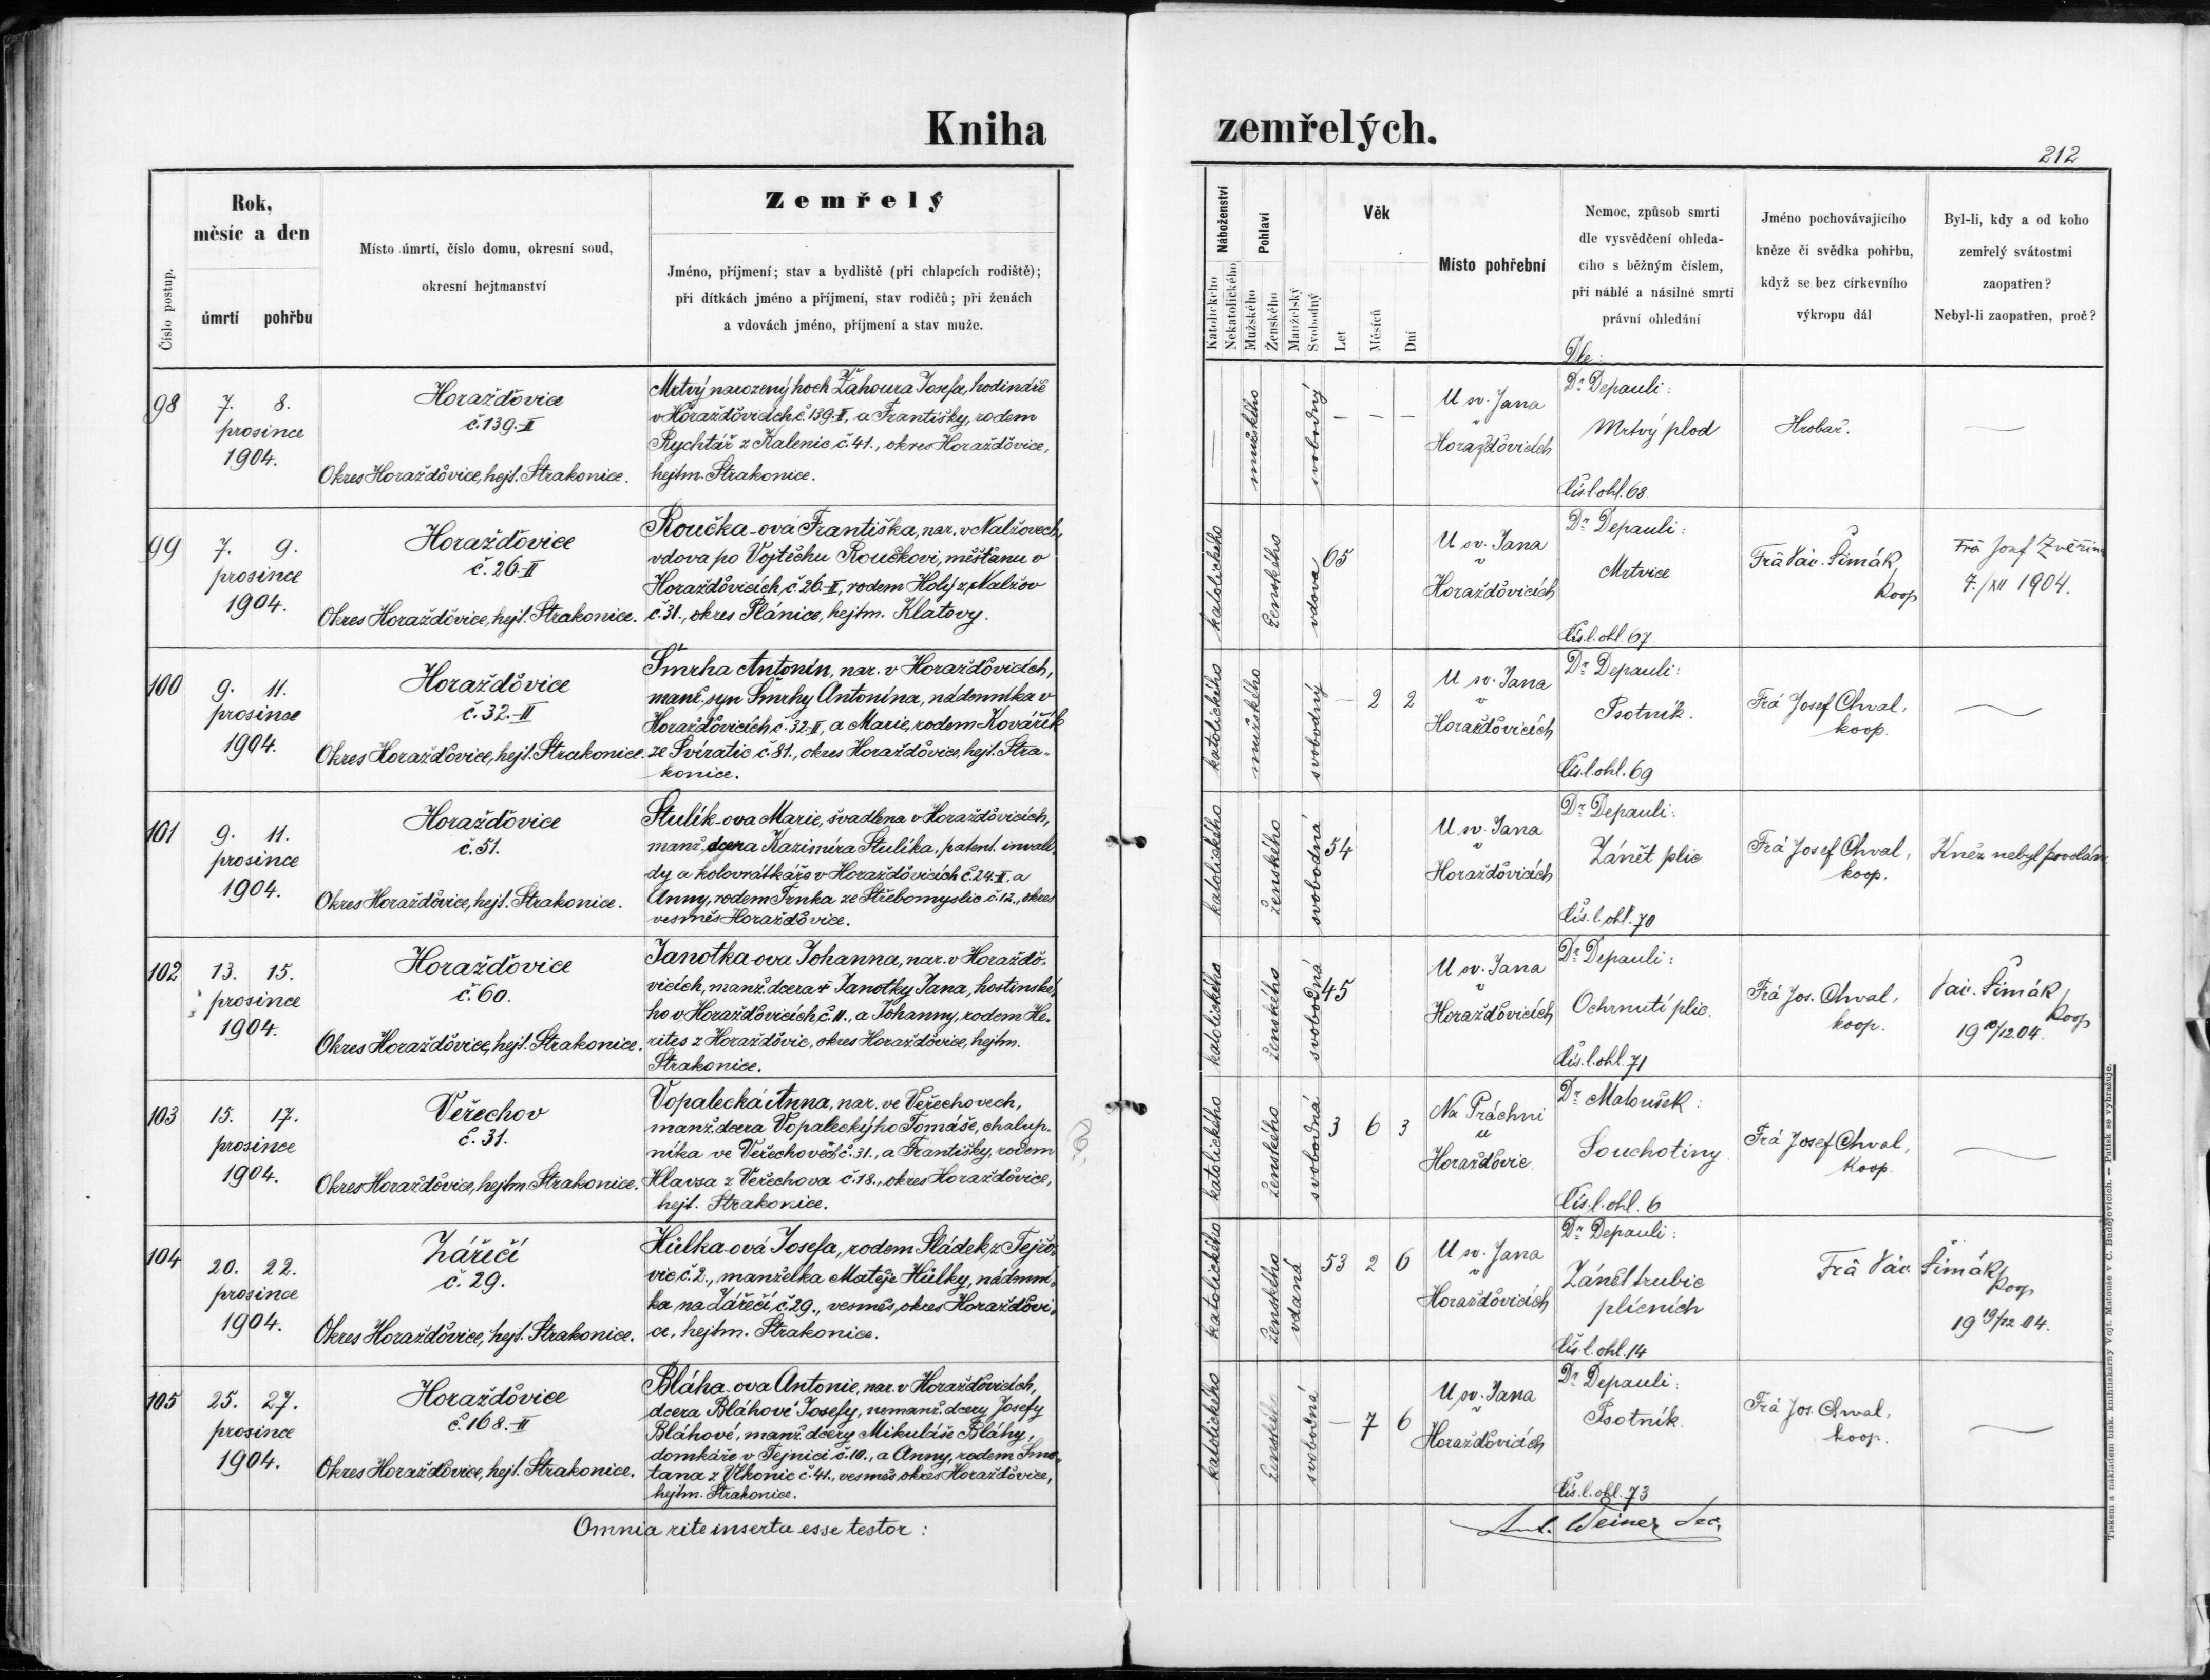 Kniha zemřelých.
212
Číslo postup.
Rok,
měsíc a den
úmrtí pohřbu
Místo úmrtí, číslo domu, okresní soud,
okresní hejtmanství
Zemřelý
Jméno, příjmení; stav a bydliště (při chlapcích rodiště);
při dítkách jméno a příjmení, stav rodičů; při ženách
a vdovách jméno, příjmení a stav muže.
Náboženství
Katolického
Nekatolického
Pohlaví
Mužského
Ženského
Manželský
Svobodný
Věk
Let
Měsíců
Dní
Místo pohřební
Nemoc, způsob smrti
dle vysvědčení ohleda-
cího s běžným číslem,
při náhlé a násilné smrti
právní ohledání
Jméno pochovávajícího
kněze či svědka pohřbu,
když se bez církevního
výkropu dál
Byl-li, kdy a od koho
zemřelý svátostmi
zaopatřen?
Nebyl-li zaopatřen, proč?
Dle:
98
7. 8.
prosince
1904.
Horažďovice
č. 139.-II
Okres Horažďovice, hejt. Strakonice.
Mrtvý narozený hoch Zahoura Josefa, hodináře
v Horažďovicích č. 139-II, a Františky, rodem
Rychtář z Kalenic č. 41., okres Horažďovice,
hejtm. Strakonice.
—
mužského
svobodný
— — —
U sv. Jana
v
Horažďovicích
Dr. Depauli:
Mrtvý plod
Čís. l. ohl. 68.
Hrobař.
—
99
7. 9.
prosince
1904.
Horažďovice
č. 26.-II
Okres Horažďovice, hejt. Strakonice.
Roučka-ová Františka, nar. v Nalžovech,
vdova po Vojtěchu Roučkovi, měšťanu v
Horažďovicích č. 26-II, rodem Holý z Nalžov
č. 31., okres Plánice, hejtm. Klatovy.
katolického
ženského
vdova
65
U sv. Jana
v
Horažďovicích
Dr. Depauli:
Mrtvice
Čís. l. ohl. 67
Frá Vác. Šimák,
koop
Frá Josef
7./XII 1904.
100
9. 11.
prosince
1904.
Horažďovice
č. 32.-II
Okres Horažďovice, hejt. Strakonice.
Šmrha Antonín, nar. v Horažďovicích,
manž. syn Šmrhy Antonína, nádenníka v
Horažďovicích č. 32-II, a Marie, rodem Kovářík
ze Svíratic č. 81., okres Horažďovice, hejt. Stra-
konice.
katolického
mužského
svobodný
— 2 2
U sv. Jana
v
Horažďovicích
Dr. Depauli:
Psotník.
Čís. l. ohl. 69
Frá Josef Chval,
koop.
—
101
9. 11.
prosince
1904.
Horažďovice
č. 51.
Okres Horažďovice, hejt. Strakonice.
Štulík-ova Marie, švadlena v Horažďovicích,
manž. dcera Kazimíra Štulíka, patent. invali-
dy a kolovrátkáře v Horažďovicích č. 24-II, a
Anny, rodem Trnka ze Střebomyslic č. 12., okres
vesměs Horažďovice.
katolického
ženského
svobodná
54
U sv. Jana
v
Horažďovicích
Dr. Depauli:
Zánět plic
Čís. l. ohl. 70
Frá Josef Chval,
koop.
Kněz nebyl povolán
102
13. 15.
prosince
1904.
Horažďovice
č. 60.
Okres Horažďovice, hejt. Strakonice.
Janotka-ova Johanna, nar. v Horaždo-
vicích, manž. dcera † Janotky Jana, hostinské-
ho v Horažďovicích č. 11., a Johanny, rodem He-
rites z Horažďovic, okres Horažďovice, hejtm.
Strakonice.
katolického
ženského
svobodná
45
U sv. Jana
v
Horažďovicích
Dr. Depauli:
Ochrnutí plic.
Čís. l. ohl. 71
Frá Jos. Chval,
koop.
Vác. Šimák,
koop
19 10/12 04.
103
15. 17.
prosince
1904.
Veřechov
č. 31.
Okres Horažďovice, hejtm. Strakonice.
Vopalecká Anna, nar. ve Veřechovech,
manž. dcera Vopaleckýho Tomáše, chalup-
níka ve Veřechovech č. 31., a Františky, rodem
Hlavsa z Veřechova č. 18., okres Horažďovice,
hejt. Strakonice.
katolického
ženského
svobodná
3 6 3
Na Práchni
u
Horažďovic.
Dr. Matoušek:
Souchotiny
Čís. l. ohl. 6
Frá Josef Chval,
koop.
—
104
20. 22.
prosince
1904.
Zářečí
č. 29.
Okres Horažďovice, hejt. Strakonice.
Hůlka-ová Josefa, rodem Sládek, z Tejřo-
vic č. 2., manželka Matěje Hůlky, nádenní-
ka na Zářečí č. 29., vesměs okres Horažďovi-
ce, hejtm. Strakonice.
katolického
ženského
vdaná
53 2 6
U sv. Jana
v
Horažďovicích
Dr. Depauli:
Zánět trubic
plícních
Čís. l. ohl. 14
Frá Vác. Šimák,
koop
19 19/12 04.
105
25. 27.
prosince
1904.
Horažďovice
č. 168.-II
Okres Horažďovice, hejt. Strakonice.
Bláha-ova Antonie, nar. v Horažďovicích,
dcera Bláhové Josefy, nemanž. dcery Josefy
Bláhové, manž. dcery Mikuláše Bláhy,
domkáře v Tejnici č. 10., a Anny, rodem Sme-
tana z Vlkonic č. 41., vesměs okres Horažďovice,
hejtm. Strakonice.
katolického
ženského
svobodná
— 7 6
U sv. Jana
v
Horažďovicích
Dr. Depauli:
Psotník.
Čís. l. ohl. 73
Frá Jos. Chval,
koop.
—
Omnia rite inserta esse testor:
Ant. Weiner Dec.
Tiskem a nákladem bisk. knihtiskárny Vojt. Matouše v Č. Budějovicích. — Patisk se vyhražuje.